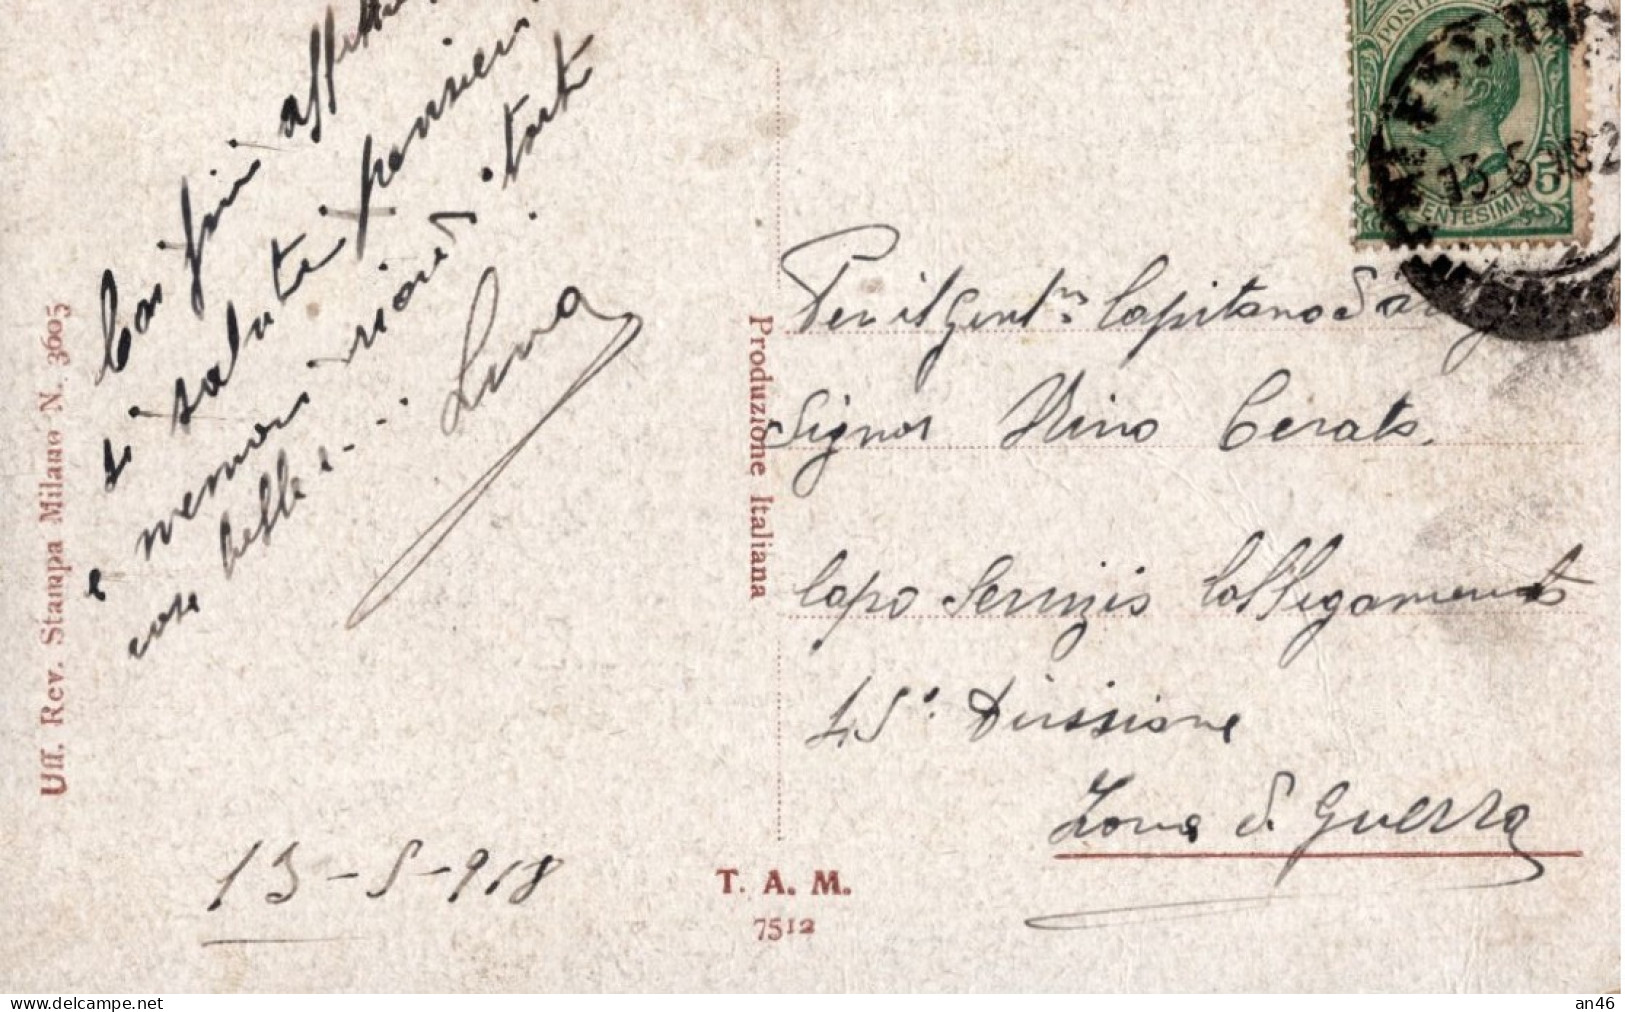 Con fini affettuosi
saluti pensieri
e memori ricord
cose belle e - . .
Luna
13-5-918
Uff. Rev. Stampa Milano N. 3605
Produzione Italiana
T. A. M.
7512
POSTE
CENTESIMI 5
13 5 18
Per il Gent.mo Capitano
Signor Nino Cerato.
Capo Servizio Collegamento
45ª Divisione
Zona di Guerra
delcampe.net
an46